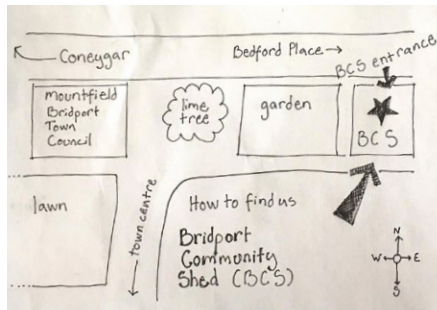 Coneygar
Bedford Place
BCS entrance
mountfield
Bridport
Town
Council
lime
tree
garden
BCS
lawn
town centre
How to find us
Bridport
Community
Shed (BCS)
N
W E
S